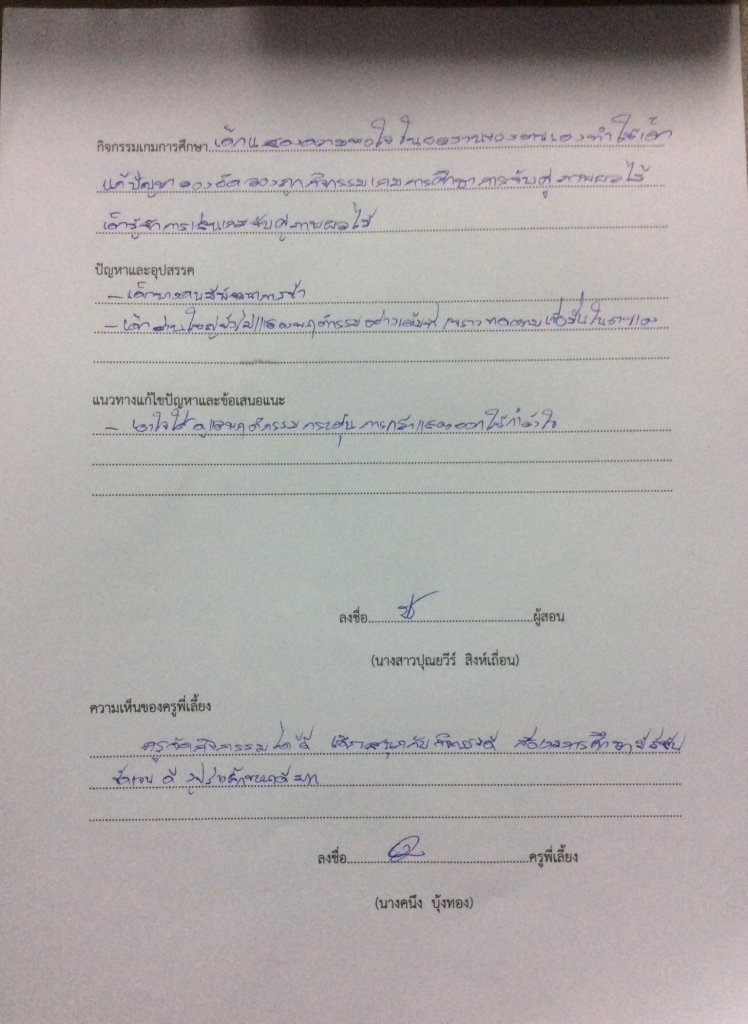 กิจกรรมเกมการศึกษา เด็กแสดงความพอใจในผลงานของตนเองทำให้เด็ก
แก้ปัญหาลองผิดลองถูก กิจกรรมเกมการศึกษาการจับคู่ภาพผลไม้
เด็กรู้จักการเล่นเกมจับคู่ภาพผลไม้
ปัญหาและอุปสรรค
- เด็กบางคนมีพัฒนาการช้า
- เด็กส่วนใหญ่ยังไม่แสดงพฤติกรรมอย่างเต็มที่ เพราะขาดความเชื่อมั่นในตนเอง
แนวทางแก้ไขปัญหาและข้อเสนอแนะ
- เอาใจใส่ ดูแลพฤติกรรม กระตุ้น การกล้าแสดงออก ให้กำลังใจ
ลงชื่อ ผู้สอน
(นางสาวปุณยวีร์ สิงห์เถื่อน)
ความเห็นของครูพี่เลี้ยง
ครูจัดกิจกรรมได้ดี เด็กสนุกกับกิจกรรมดี สื่อเกมการศึกษามีสีสัน
ชัดเจน ดี รูปร่างลักษณะดีมาก
ลงชื่อ ครูพี่เลี้ยง
(นางคนึง บุ้งทอง)